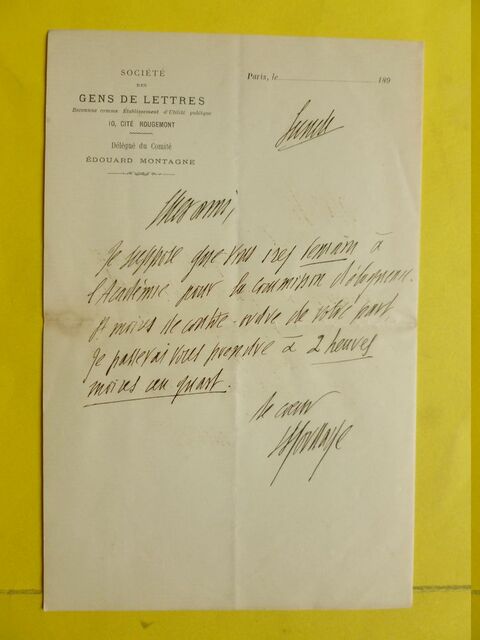 SOCIÉTÉ
DES
GENS DE LETTRES
Reconnue comme Établissement d'Utilité publique
10, CITÉ ROUGEMONT
Délégué du Comité
ÉDOUARD MONTAGNE
Paris, le 189
Lundi
Mon ami,
Je suppose que vous irez demain à
l'Académie pour la commission d'éloquence.
À moins de contre-ordre de votre part
je passerai vous prendre à 2 heures
moins un quart.
de cœur